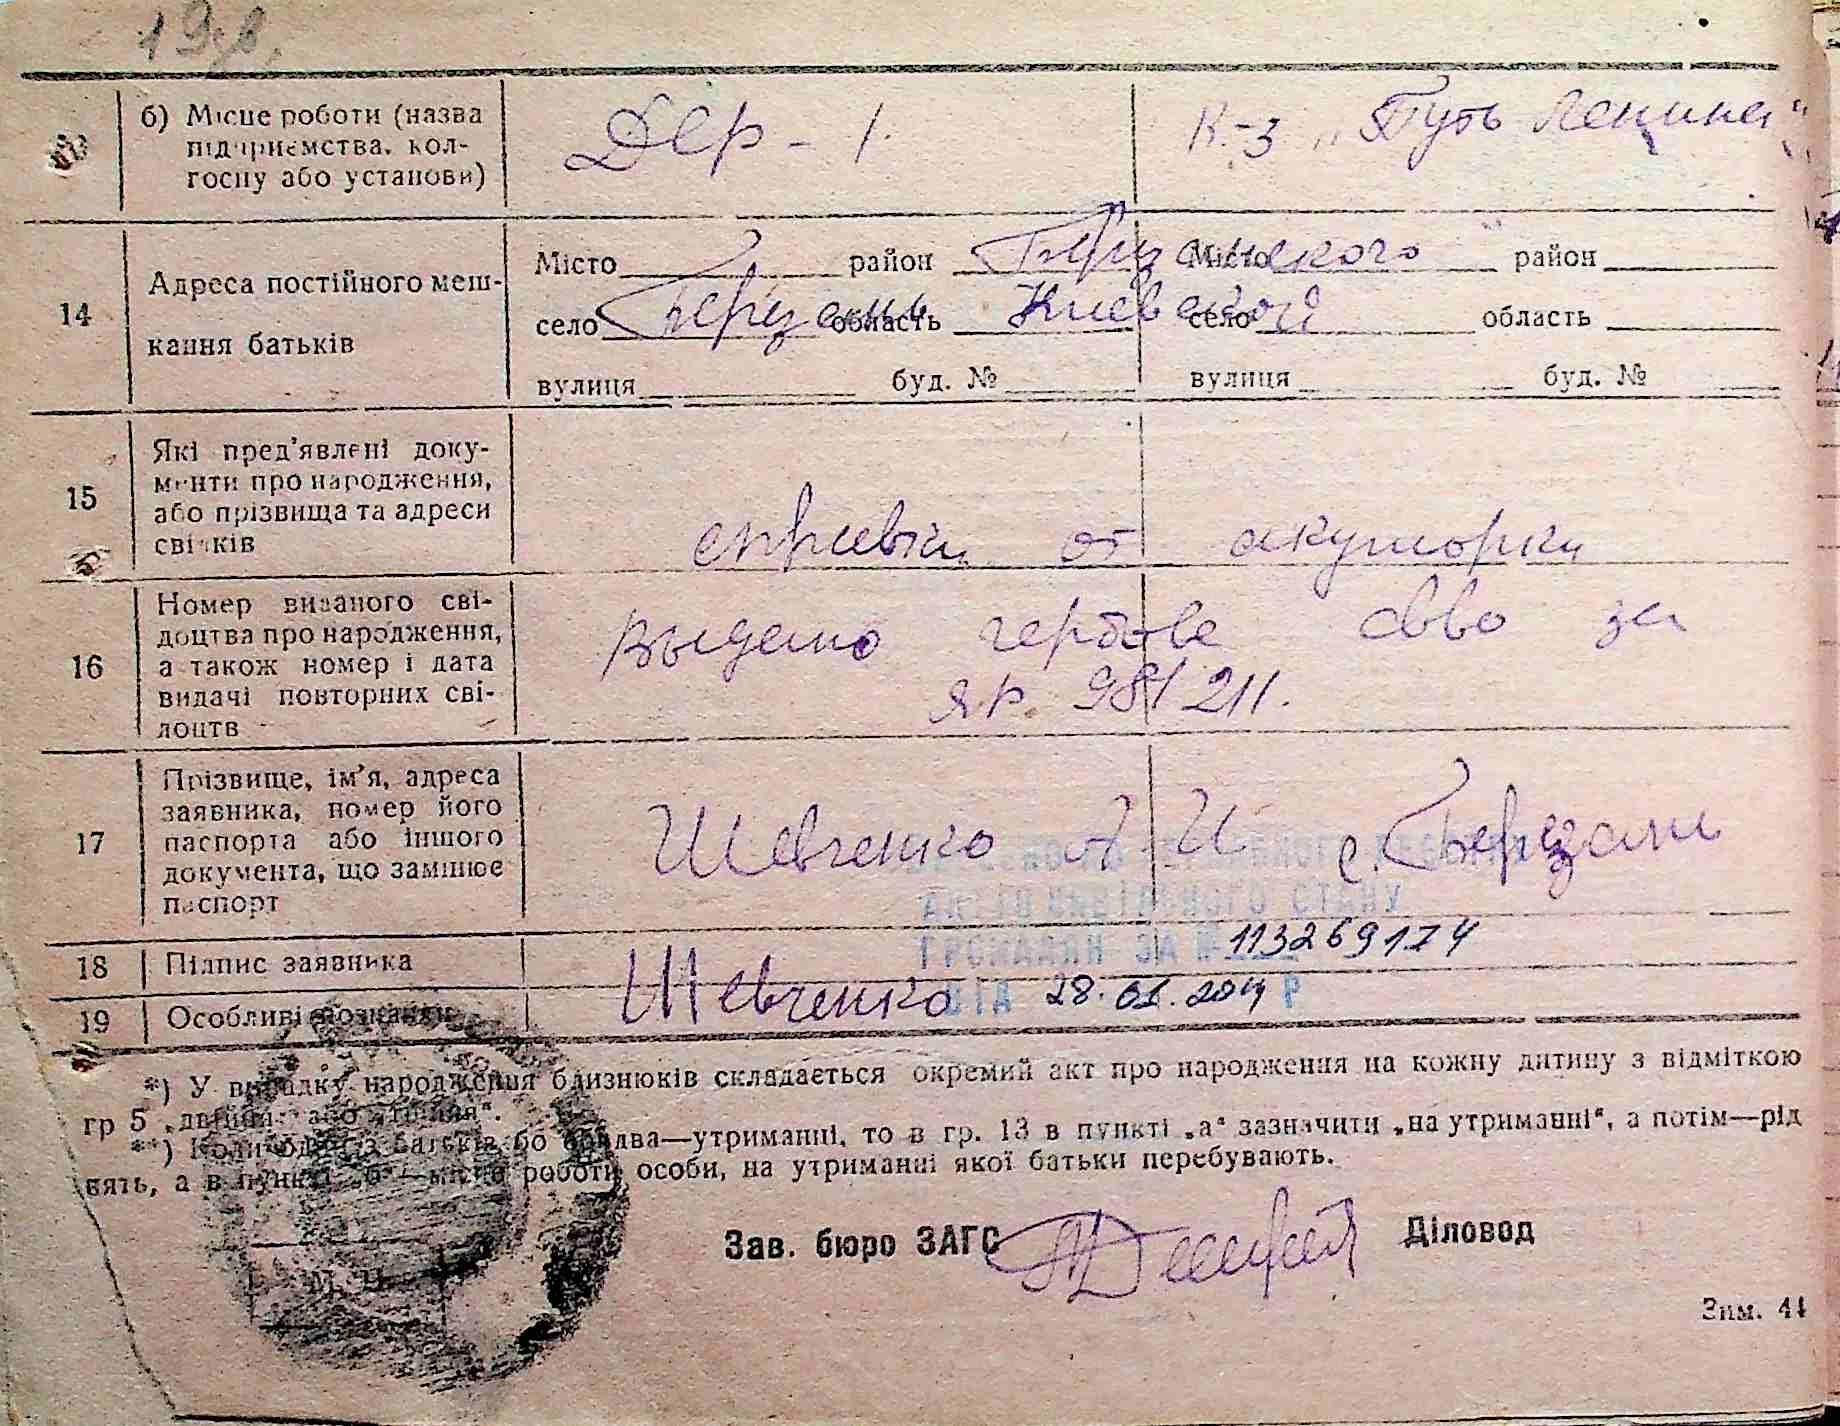 19 в.
б) Місце роботи (назва підприємства, кол-
госпу або установи)
ДЭР - 1.
К-з „Путь Ленина“
14
Адреса постійного меш-
кання батьків
Місто район Березанского Місто район
село Березань область Киевской село область
вулиця буд. № вулиця буд. №
15
Які пред'явлені доку-
менти про народження,
або прізвища та адреси
свідків
справки от акушорки
16
Номер виданого сві-
доцтва про народження,
а також номер і дата
видачі повторних сві-
доцтв
Выдано гербове свво за
ЯР. 981211.
17
Прізвище, ім'я, адреса
заявника, номер його
паспорта або іншого
документа, що замінює
паспорт
Шевченко А И с. Березань
АКТІВ ЦИВІЛЬНОГО СТАНУ
ГРОМАДЯН ЗА № 113269174
ВІД 28.01.2014 Р
18
Підпис заявника
Шевченко
19
Особливі познанки
*) У випадку народження близнюків складається окремий акт про народження на кожну дитину з відміткою
гр 5 „двійня“ або „тройня“.
**) Коли один із батьків або обидва—утриманні, то в гр. 13 в пункті „а“ зазначити „на утриманні“, а потім—рід
нять, а в пункті „б“—місце роботи особи, на утриманні якої батьки перебувають.
М. П.
Зав. бюро ЗАГС
Діловод
Зим. 44